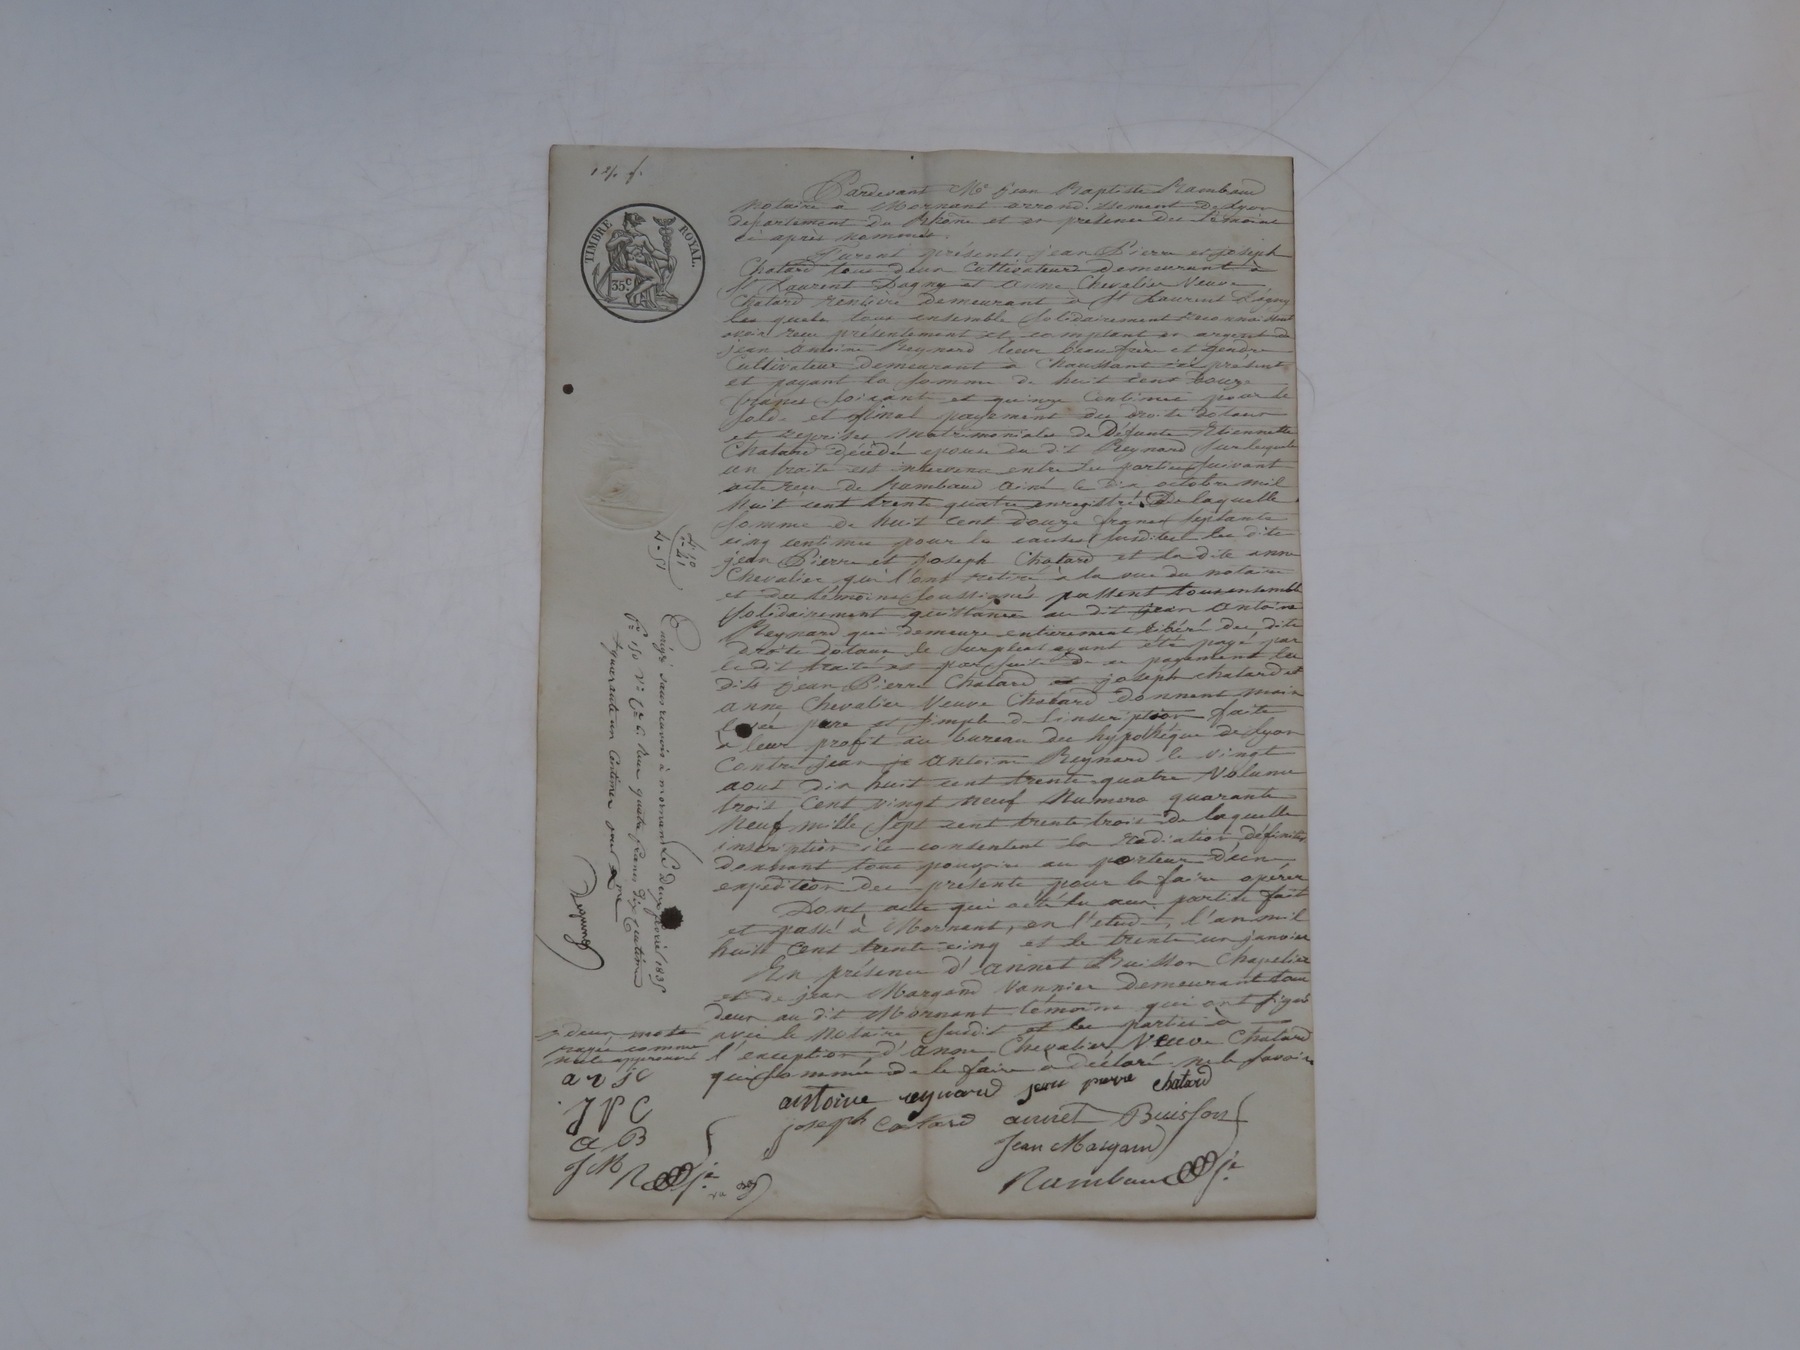 TIMBRE ROYAL.
35 c.
Pardevant Me jean Baptiste Rambaud
Notaire a Mornant arrondissement De Lyon
departement du Rhône et en présence des témoins
ci après nommés.
Furent présents jean Pierre et joseph
Chatard tous deux Cultivateurs demeurant à
St Laurent Dagny et anne Chevalier Veuve
Chatard rentière demeurant à St Laurent Dagny
Les quels tous ensemble Solidairement reconnaissent
avoir reçu présentement et comptant en argent de
jean antoine Reynard leur beaufrère et gendre
Cultivateur demeurant a Chaussant ici présent
et payant la somme de huit cent douze
francs soixante et quinze centimes pour le
solde et final payement des droits dotaux
et reprises matrimoniales de Défunte Etiennette
Chatard décédée epouse du dit Reynard sur lesquels
un traité est intervenu entre les parties suivant
acte reçu de Rambaud ainé le dix octobre mil
huit cent trente quatre enregistré. De laquelle
somme de huit cent douze francs septante
cinq centimes pour les causes susdites les dits
jean Pierre et joseph Chatard et la dite anne
Chevalier qui l'ont retiré à la vue du notaire
et des témoins soussignés passent tous ensemble
solidairement quittance au dit jean antoine
Reynard qui demeure entierement libéré des dits
droits dotaux le surplus ayant été payé par
le dit traité et par suite de ce payement les
dits jean Pierre Chatard et joseph chatard et
anne Chevalier Veuve Chatard donnent main
levée pure et simple de l'inscription faite
a leur profit au bureau des hypothèque de Lyon
Contre jean antoine Reynard le vingt
aout dix huit cent trente quatre Volume
trois cent vingt neuf Numero quarante
neuf mille sept cent trente trois de laquelle
inscription ils consentent la radiation définitive
donnant tous pouvoirs au porteur d'une
expédition des présentes pour la faire opérer
Dont acte qui a été lu aux parties fait
et passé à Mornant, en l'étude, l'an mil
huit cent trente cinq et le trente un janvier
En présence d'annet Buisson Chapelier
et de jean Margand Vannier demeurant tous
deux au dit Mornant témoins qui ont signé
avec le Notaire susdit et les parties à
l'exception d'anne Chevalier Veuve Chatard
qui sommée de le faire a déclaré ne le savoir
antoine reynard jean pierre chatard
joseph catard annet Buisson
Jean Margand
Rambaud je
Enrgé sans renvois à mornant Le Deux fevrier 1835
fo 150 Vo Co 6. Reçu quatre francs Dix centimes
quarante un Centimes pour 10me
deux mots
rayés comme
nuls approuvés
a r j c
J P C
a B
J M R je